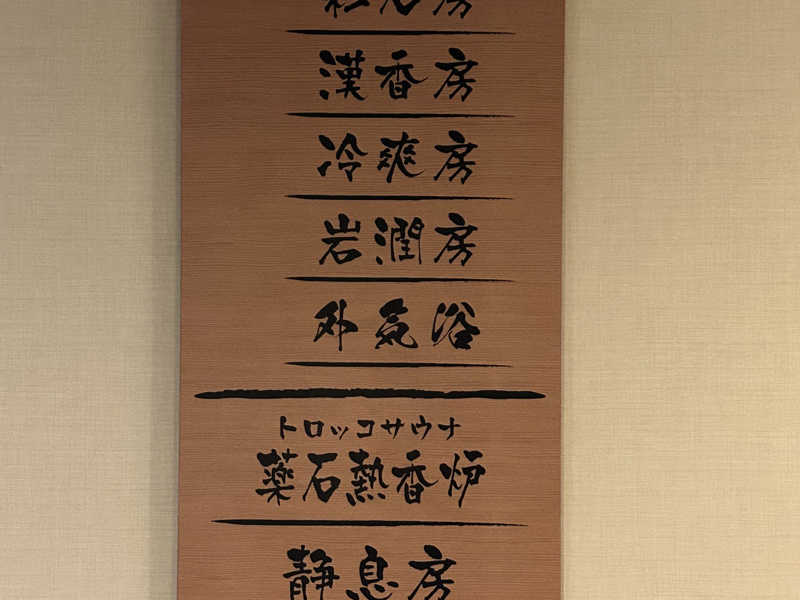 漢香房
冷爽房
岩潤房
外気浴
トロッコサウナ
薬石熱香炉
静息房